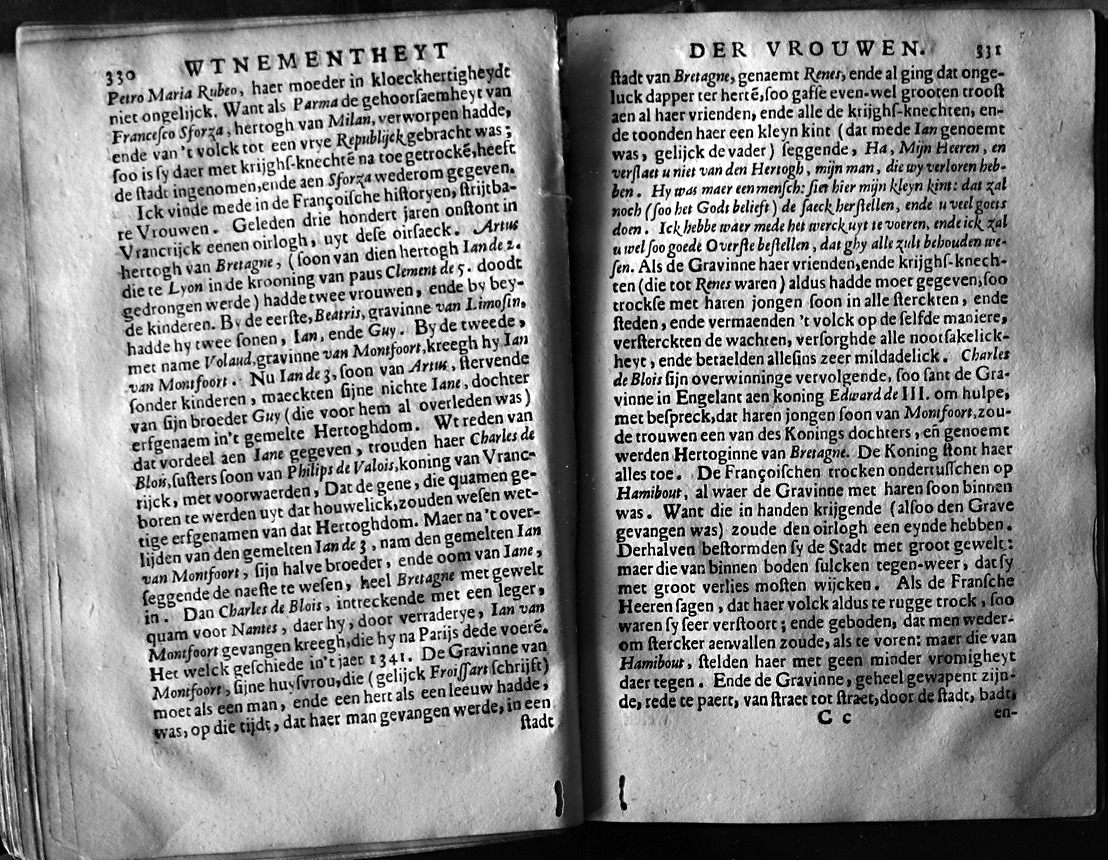 330 WTNEMENTHEYT
Petro Maria Rubeo, haer moeder in kloeckhertigheydt
niet ongelijck. Want als Parma de gehoorſaemheyt van
Franceſco Sforza, hertogh van Milan, verworpen hadde,
ende van 't volck tot een vrye Republijck gebracht was;
ſoo is ſy daer met krijghſ-knechtē na toe getrockē, heeft
de ſtadt ingenomen, ende aen Sforza wederom gegeven.
Ick vinde mede in de Françoiſche hiſtoryen, ſtrijtba-
re Vrouwen. Geleden drie hondert jaren onſtont in
Vrancrijck eenen oirlogh, uyt deſe oirſaeck. Artus
hertogh van Bretagne, (ſoon van dien hertogh Ian de 2.
die te Lyon in de krooning van paus Clement de 5. doodt
gedrongen werde) hadde twee vrouwen, ende by bey-
de kinderen. By de eerſte, Beatris, gravinne van Limoſin,
hadde hy twee ſonen, Ian, ende Guy. By de tweede,
met name Volaud, gravinne van Montfoort, kreegh hy Ian
van Montfoort. Nu Ian de 3, ſoon van Artus, ſtervende
ſonder kinderen, maeckten ſijne nichte Iane, dochter
van ſijn broeder Guy (die voor hem al overleden was)
erfgenaem in't gemelte Hertoghdom. Wt reden van
dat vordeel aen Iane gegeven, trouden haer Charles de
Blois, ſuſters ſoon van Philips de Valois, koning van Vranc-
rijck, met voorwaerden, Dat de gene, die quamen ge-
boren te werden uyt dat houwelick, zouden weſen wet-
tige erfgenamen van dat Hertoghdom. Maer na 't over-
lijden van den gemelten Ian de 3, nam den gemelten Ian
van Montfoort, ſijn halve broeder, ende oom van Iane,
ſeggende de naeſte te weſen, heel Bretagne met gewelt
in. Dan Charles de Blois, intreckende met een leger,
quam voor Nantes, daer hy, door verraderye, Ian van
Montfoort gevangen kreegh, die hy na Parijs dede voerē.
Het welck geſchiede in't jaer 1341. De Gravinne van
Montfoort, ſijne huyſvrou, die (gelijck Froiſſart ſchrijft)
moet als een man, ende een hert als een leeuw hadde,
was, op die tijdt, dat haer man gevangen werde, in een
ſtadt
DER VROUWEN. 331
ſtadt van Bretagne, genaemt Renes, ende al ging dat onge-
luck dapper ter hertē, ſoo gaſſe even-wel grooten trooſt
aen al haer vrienden, ende alle de krijghſ-knechten, en-
de toonden haer een kleyn kint (dat mede Ian genoemt
was, gelijck de vader) ſeggende, Ha, Mijn Heeren, en
verſlaet u niet van den Hertogh, mijn man, die wy verloren heb-
ben. Hy was maer een menſch: ſiet hier mijn kleyn kint: dat zal
noch (ſoo het Godt belieft) de ſaeck herſtellen, ende u veel goets
doen. Ick hebbe waer mede het werck uyt te voeren, ende ick zal
u wel ſoo goede Overſte beſtellen, dat ghy alle zult behouden we-
ſen. Als de Gravinne haer vrienden, ende krijghſ-knech-
ten (die tot Renes waren) aldus hadde moet gegeven, ſoo
trockſe met haren jongen ſoon in alle ſterckten, ende
ſteden, ende vermaenden 't volck op de ſelfde maniere,
verſterckten de wachten, verſorghde alle nootſakelick-
heyt, ende betaelden alleſins zeer mildadelick. Charles
de Blois ſijn overwinninge vervolgende, ſoo ſant de Gra-
vinne in Engelant aen koning Edward de III. om hulpe,
met beſpreck, dat haren jongen ſoon van Montfoort, zou-
de trouwen een van des Konings dochters, eñ genoemt
werden Hertoginne van Bretagne. De Koning ſtont haer
alles toe. De Françoiſchen trocken ondertuſſchen op
Hamibout, al waer de Gravinne met haren ſoon binnen
was. Want die in handen krijgende (alſoo den Grave
gevangen was) zoude den oirlogh een eynde hebben.
Derhalven beſtormden ſy de Stadt met groot gewelt:
maer die van binnen boden ſulcken tegen-weer, dat ſy
met groot verlies moſten wijcken. Als de Franſche
Heeren ſagen, dat haer volck aldus te rugge trock, ſoo
waren ſy ſeer verſtoort; ende geboden, dat men weder-
om ſtercker aenvallen zoude, als te voren: maer die van
Hamibout, ſtelden haer met geen minder vromigheyt
daer tegen. Ende de Gravinne, geheel gewapent zijn-
de, rede te paert, van ſtraet tot ſtraet, door de ſtadt, badt,
C c en-